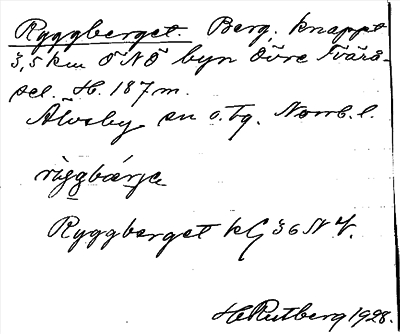 Ryggberget. Berg, knappt
3,5 km ÖNÖ byn Övre Tväråsel.
H. 187 m.
Älvsby sn o. tg. Norrb. l.
riggbærjə
Ryggberget kG 36 N 4.
H Rutberg 1928.